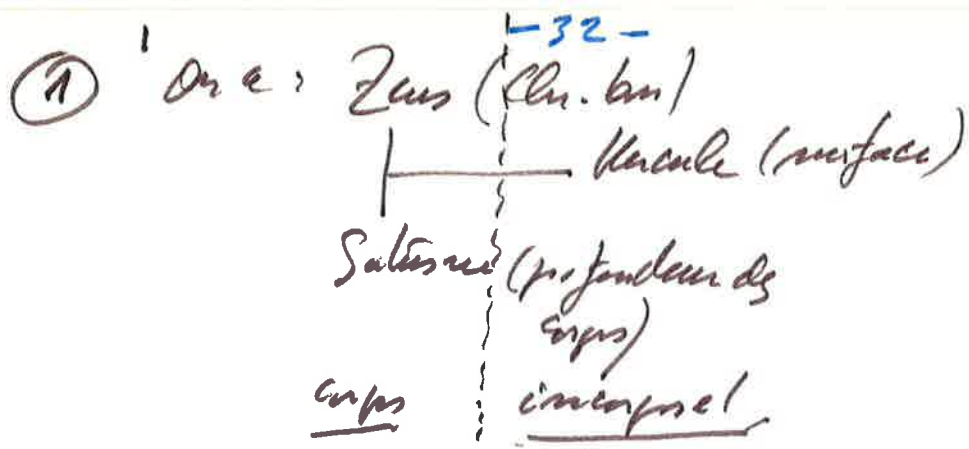 - 32 -
① On a : Zeus (
Hercule (surface)
Saturne (profondeur des
corps)
corps incorporel